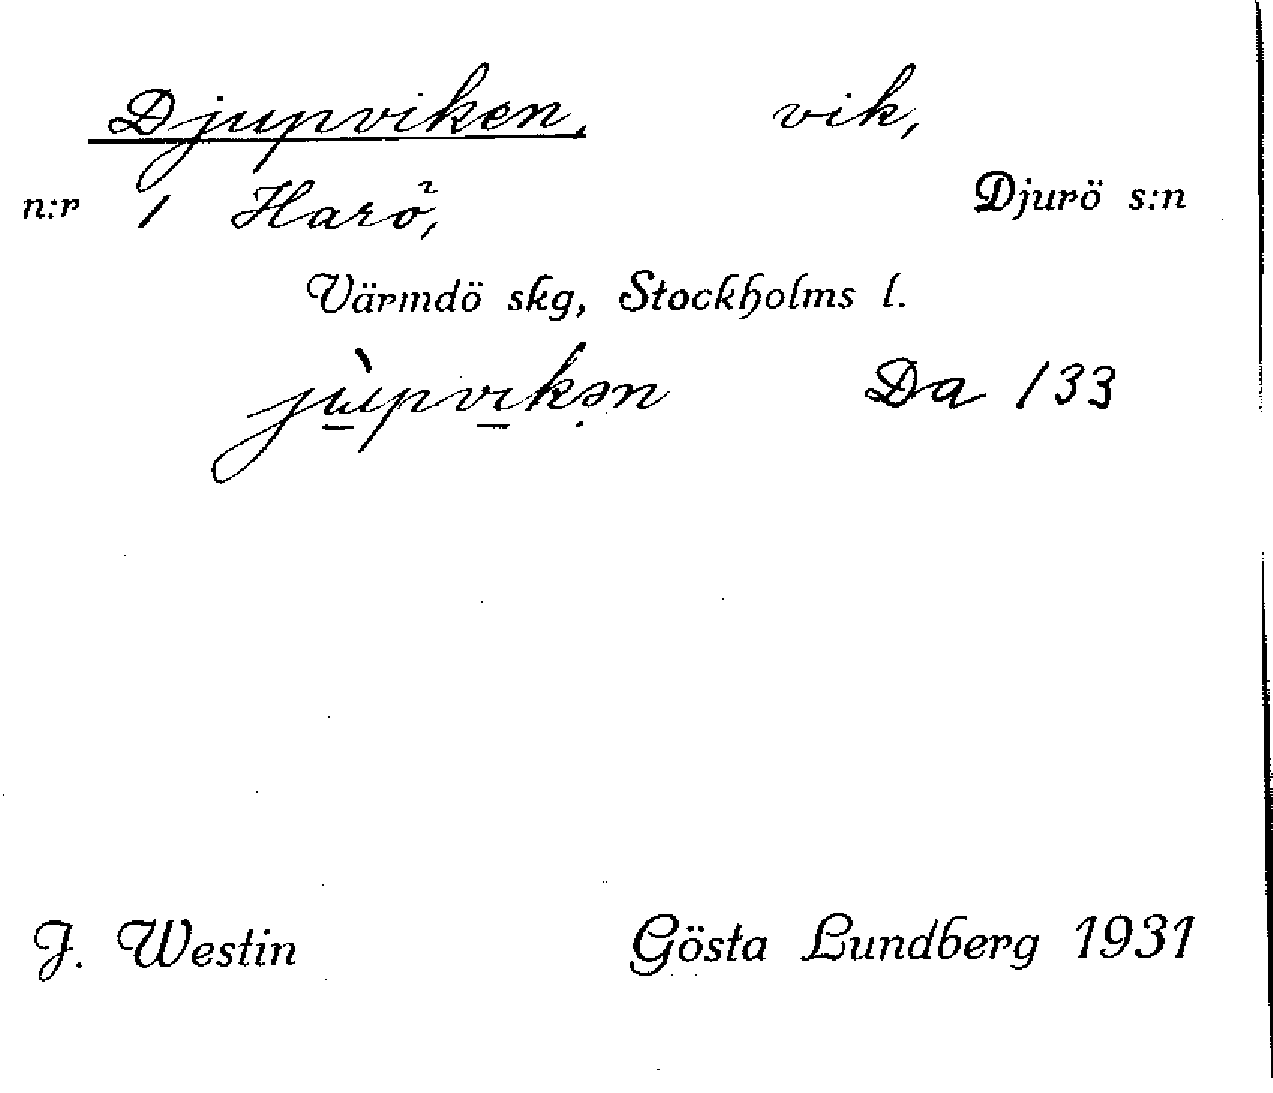 Djupviken, vik,
n:r 1 Harö, Djurö s:n
Värmdö skg, Stockholms l.
jùpvikən Da 133
J. Westin Gösta Lundberg 1931